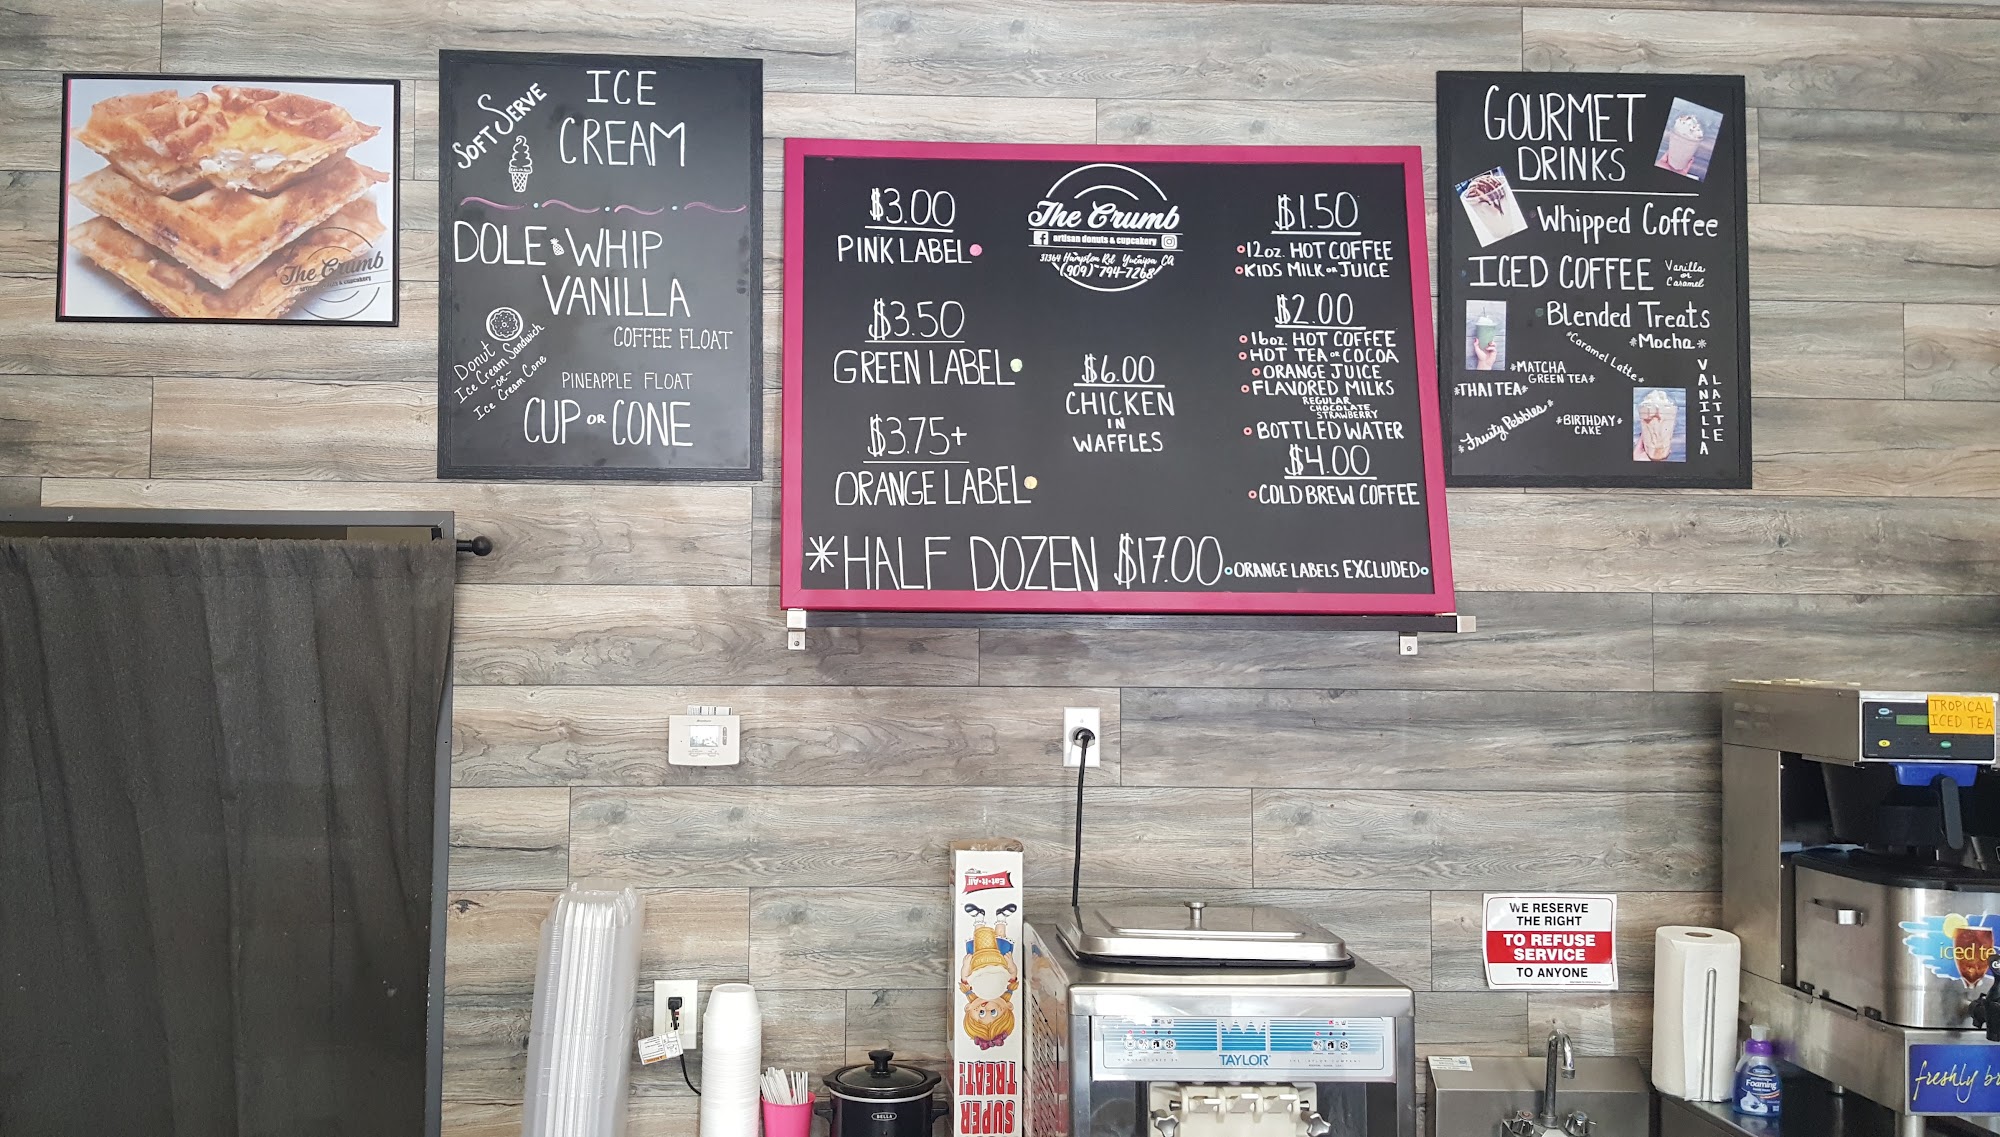 The Crumb
SOFT SERVE
ICE
CREAM
DOLE WHIP
VANILLA
COFFEE FLOAT
Donut
Ice Cream Sandwich
~or~
Ice Cream Cone
PINEAPPLE FLOAT
CUP OR CONE
$3.00
PINK LABEL
$3.50
GREEN LABEL
$3.75+
ORANGE LABEL
The Crumb
artisan donuts & cupcakery
31364 Hampton Rd Yucaipa CA
(909) 794-7268
$6.00
CHICKEN
IN
WAFFLES
$1.50
12oz. HOT COFFEE
KIDS MILK OR JUICE
$2.00
16oz. HOT COFFEE
HOT TEA OR COCOA
ORANGE JUICE
FLAVORED MILKS
REGULAR
CHOCOLATE
STRAWBERRY
BOTTLED WATER
$4.00
COLD BREW COFFEE
*HALF DOZEN $17.00 ORANGE LABELS EXCLUDED
GOURMET
DRINKS
Whipped Coffee
ICED COFFEE Vanilla
or
Caramel
Blended Treats
*Mocha*
*Caramel Latte*
*MATCHA
GREEN TEA*
*THAI TEA*
*Fruity Pebbles*
*BIRTHDAY*
CAKE
VANILLA
LATTE
TROPICAL
ICED TEA
WE RESERVE
THE RIGHT
TO REFUSE
SERVICE
TO ANYONE
iced te
freshly br
Foaming
TAYLOR
BELLA
Eat-It-All
SUPER
TREAT!